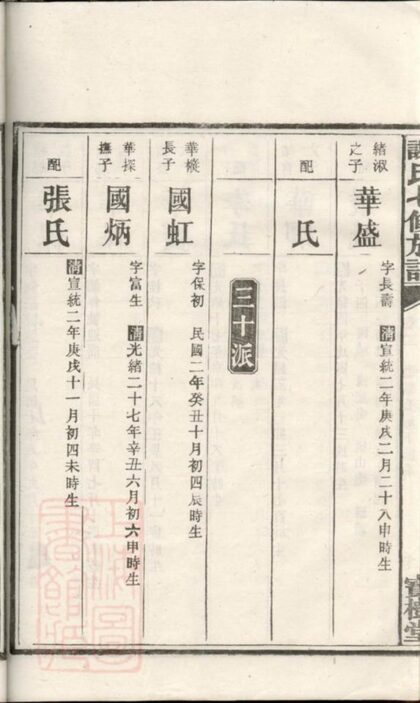 謝氏七修族譜
寶樹堂
緒淑
之子
華盛
字長壽 清宣統二年庚戌二月二十八申時生
配
氏
三十派
華
長子
國虹
字保初 民國二年癸丑十月初四辰時生
華探
撫子
國炳
字富生 清光緒二十七年辛丑六月初六申時生
配
張氏
清宣統二年庚戌十一月初四未時生